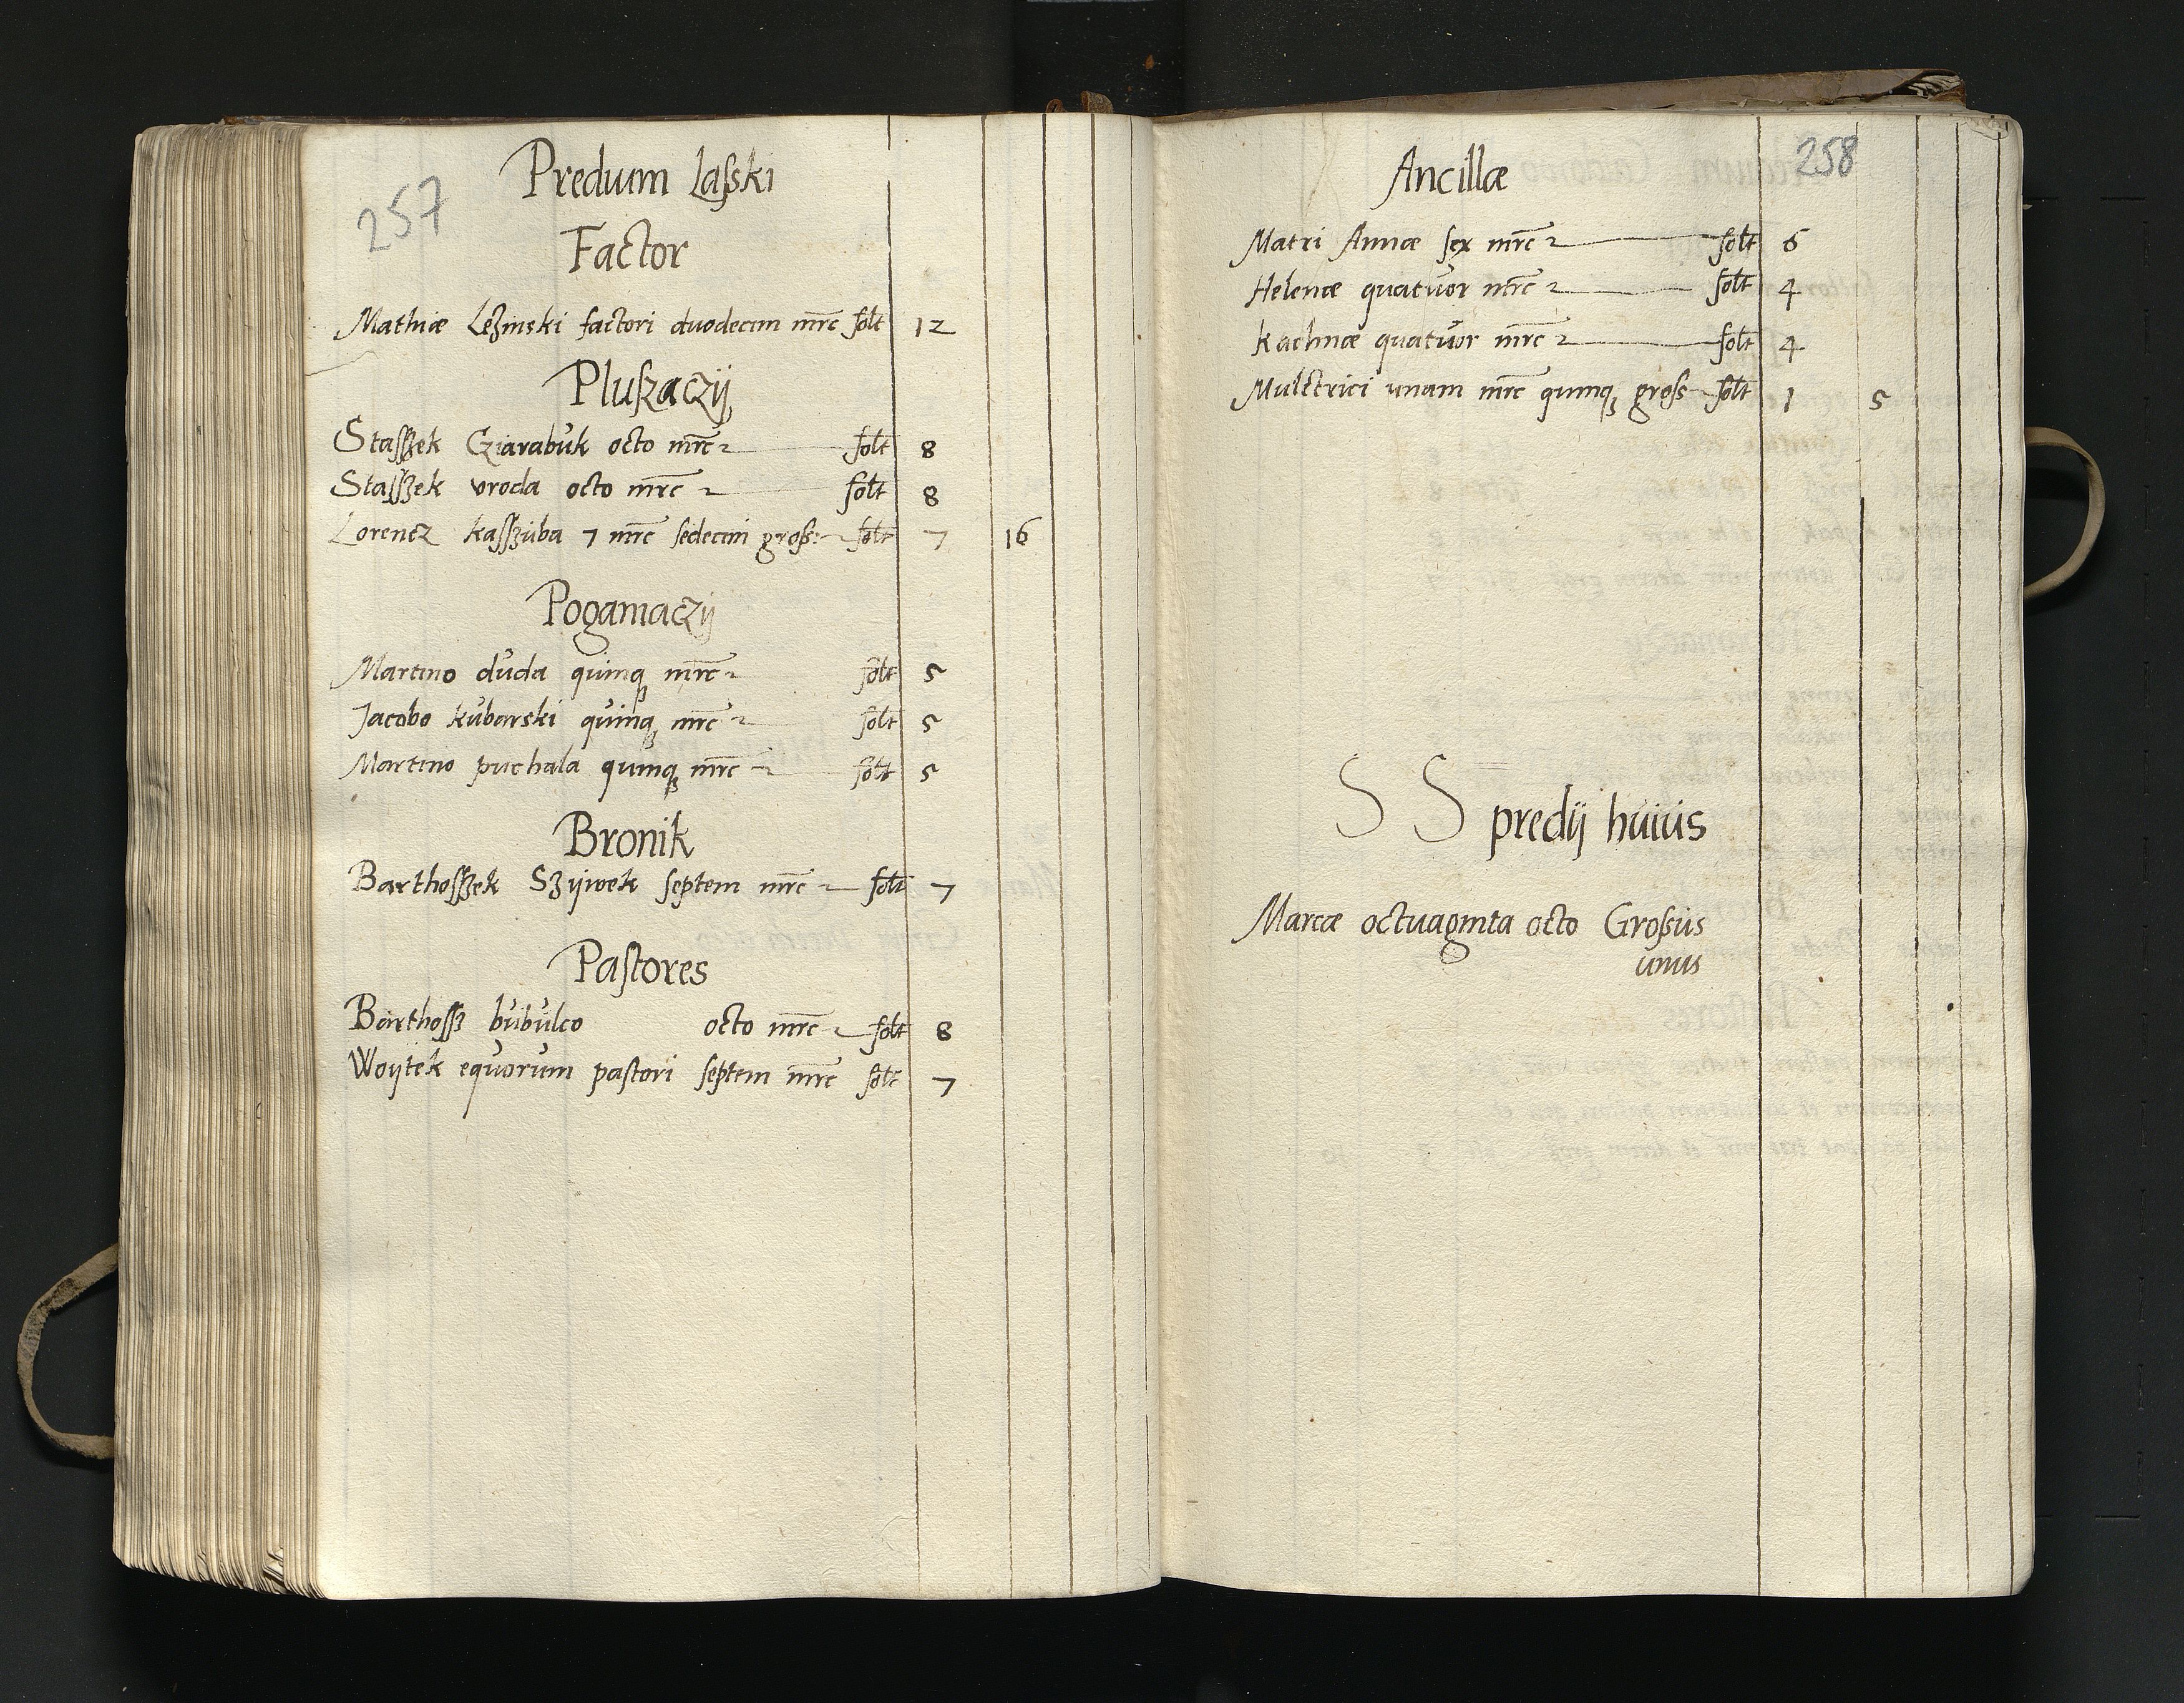 257
Predium Laſski
Factor
Mathiæ Leʒinski factori duodecim mrc ſolt 12
Pluſzaczÿ
Staſſʒek Cziarabuk octo mrc ſolt 8
Staſſʒek vroda octo mrc ſolt 8
Lorencz kaſſʒuba 7 mrc ſedecim groſ: ſolt 7 16
Poganiaczÿ
Martino duda quinqꝫ mrc ſolt 5
Jacobo kubarski quinqꝫ mrc ſolt 5
Martino puchala quinqꝫ mrc ſolt 5
Bronik
Barthoſſʒek Sʒÿwek ſeptem mrc ſolt 7
Paſtores
Barthoſſʒ bubulco octo mrc ſolt 8
Woÿtek equorum paſtori ſeptem mrc ſolt 7
258
Ancillæ
Matri Annæ ſex mrc ſolt 6
Helenæ quatuor mrc ſolt 4
kachnæ quatuor mrc ſolt 4
Mulctrici unam mrc quinqꝫ groſs ſolt 1 5
S S predÿ huius
Marcæ octuaginta octo Groſsus
unus